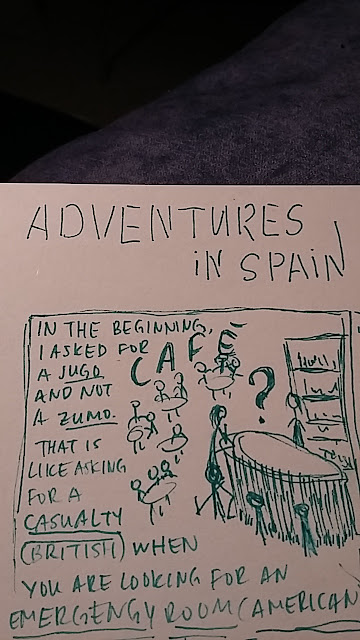 ADVENTURES
IN SPAIN
IN THE BEGINNING,
I ASKED FOR
A JUGO
AND NOT
A ZUMO.
THAT IS
LIKE ASKING
FOR A
CASUALTY
(BRITISH) WHEN
YOU ARE LOOKING FOR AN
EMERGENGY ROOM (AMERICAN
CAFE
?